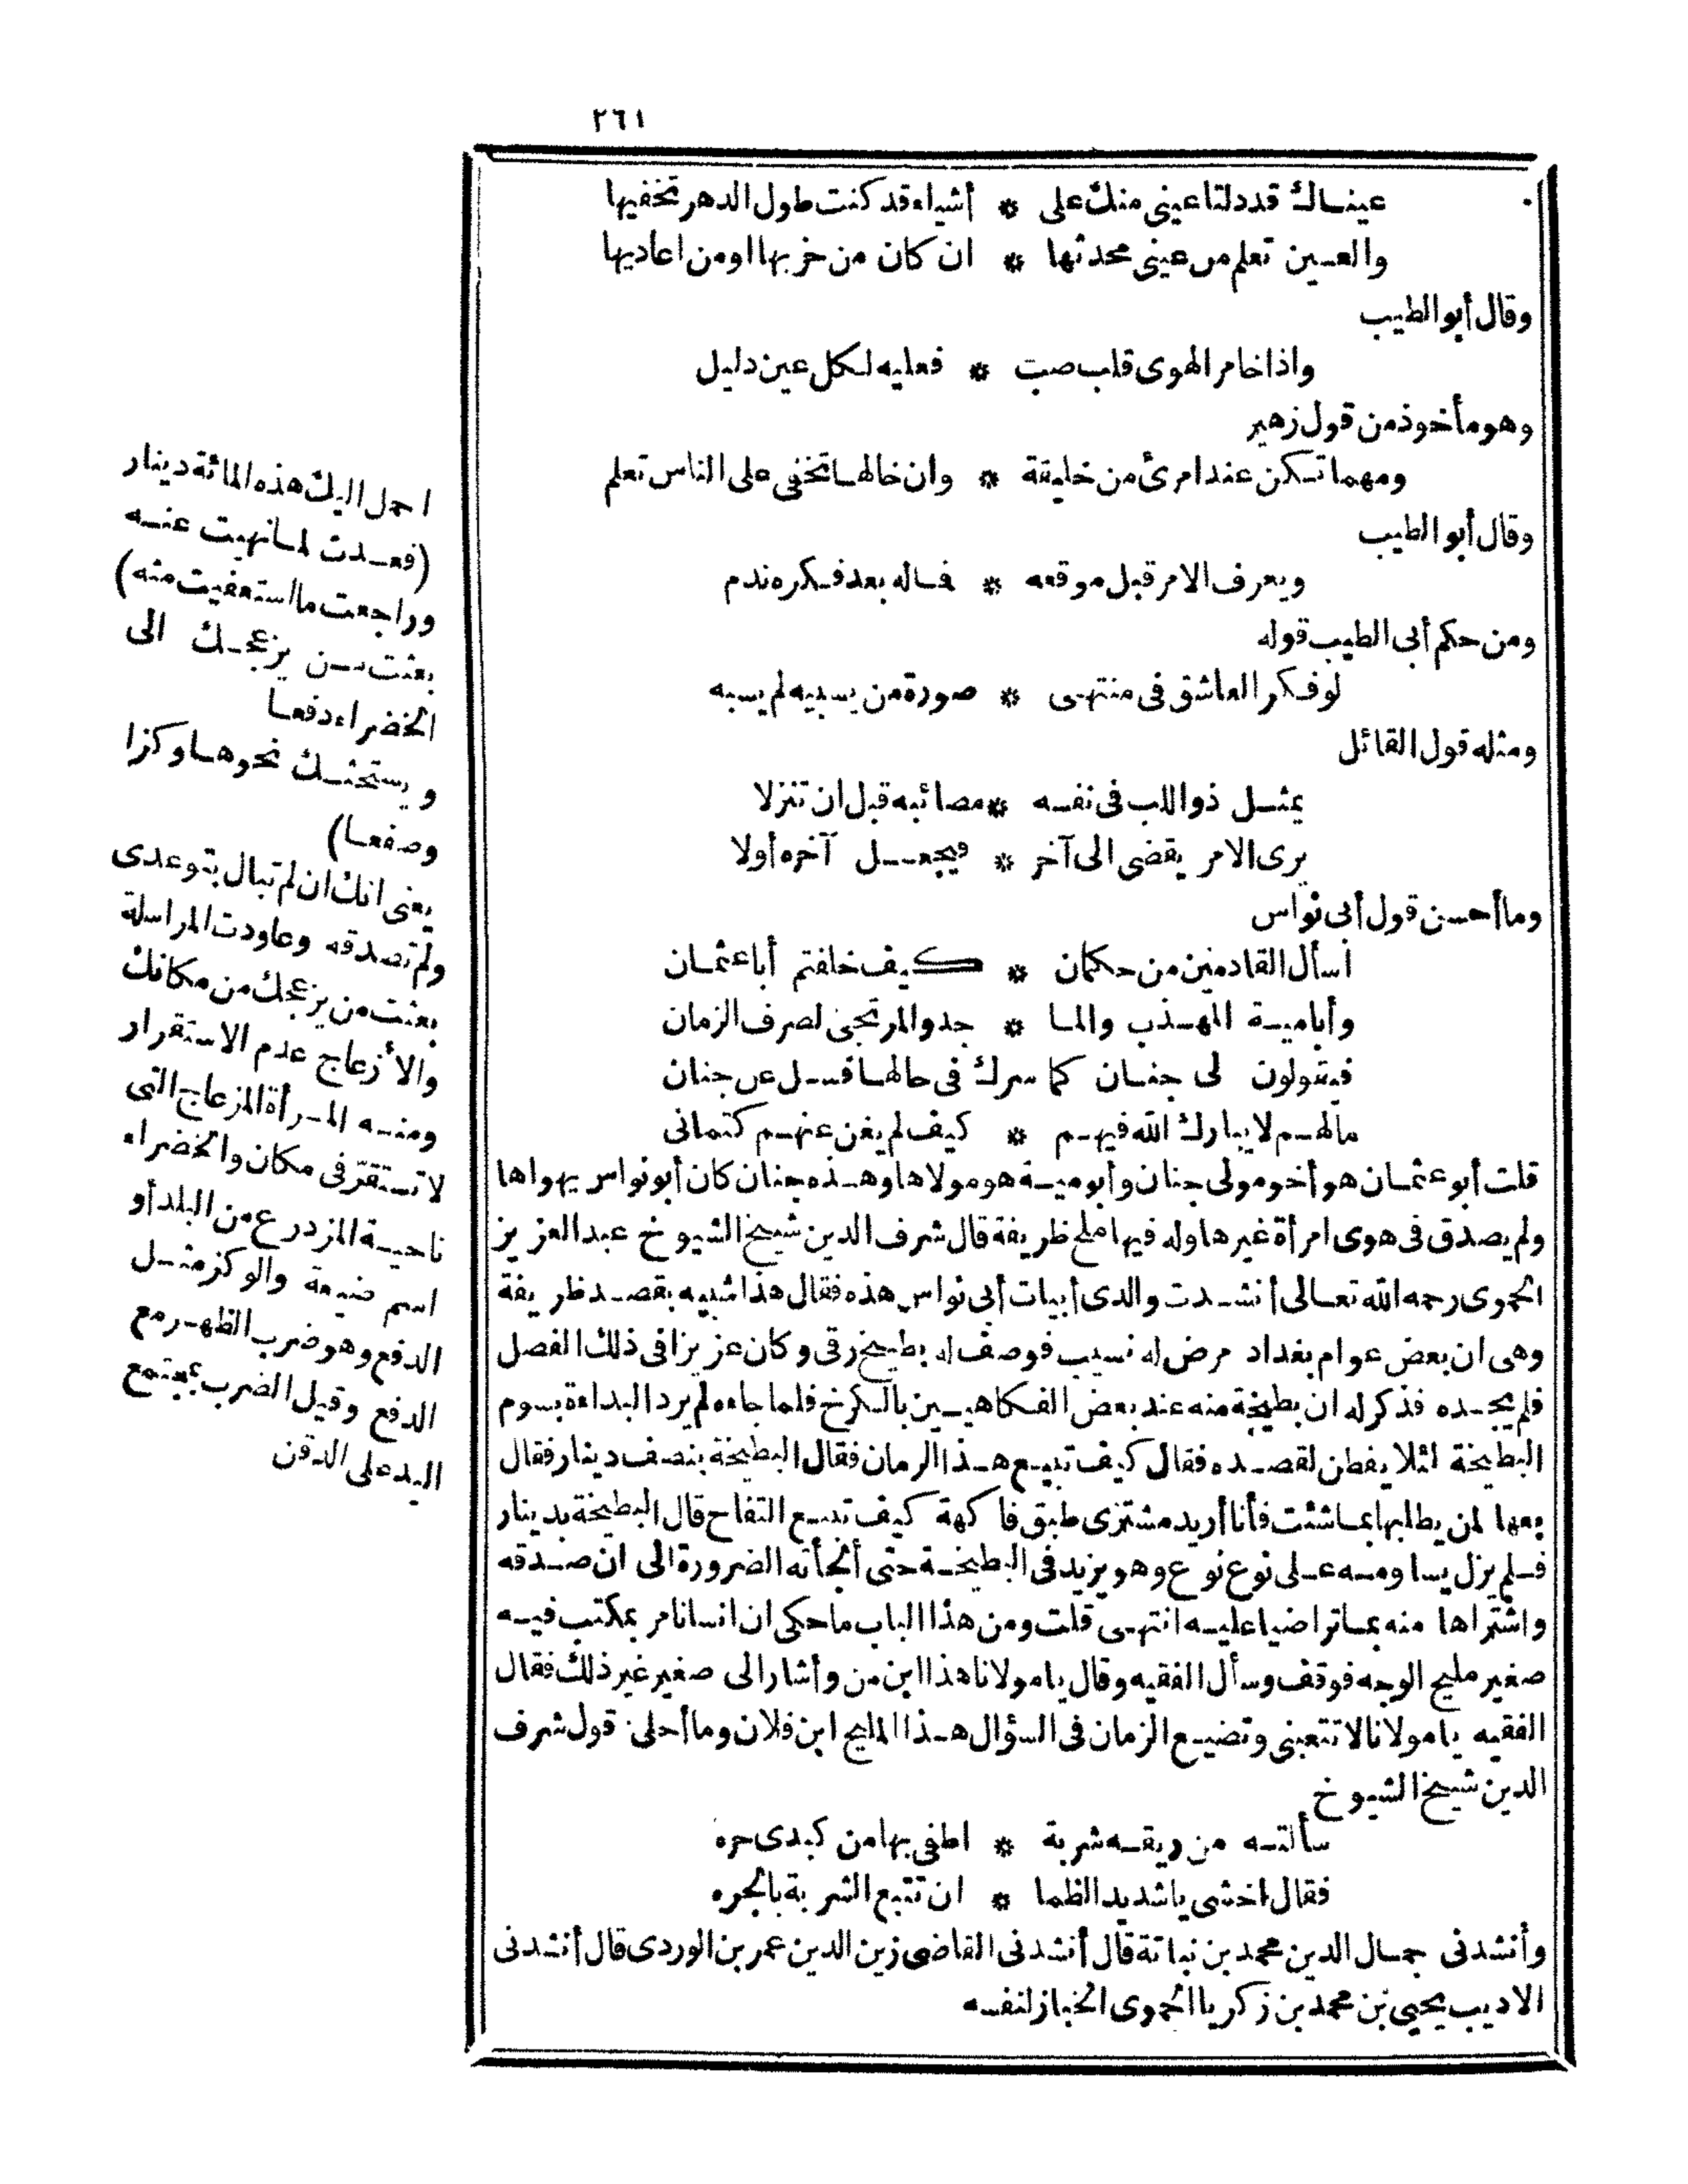 ٢٦١
عينـاك قد دلتا عينى منك على * أشياء قد كنت طول الدهر تخفيها
والعـين تعلم من عينى محدثها * ان كان من حزبها او من اعاديها
وقال أبو الطيب
واذا خامر الهوى قلب صب * فعليه لكل عين دليل
وهو مأخوذ من قول زهير
ومهما تكن عند امرئ من خليقة * وان خالها تخفى على الناس تعلم
وقال أبو الطيب
ويعرف الامر قبل موقعه * فماله بعد فكره ندم
ومن حكم أبى الطيب قوله
لو فكر العاشق فى منتهى * صورة من يسبيه لم يسبه
ومثله قول القائل
يمثل ذو اللب فى نفسه * مصائبه قبل ان تنزلا
يرى الامر يقضى الى آخر * فيجعل آخره أولا
وما أحسن قول أبى نواس
أسأل القادمين من حكمان * كيف خلفتم أبا عثمان
وأبا مية المهذب والما * جد والمرتجى لصرف الزمان
فيقولون لى جنان كما سرك فى حالها فسل عن جنان
مالهم لا يبارك الله فيهم * كيف لم يغن عنهم كتمانى
قلت أبو عثمان هو أخو مولى جنان وأبو مية هو مولاها وهذه جنان كان أبو نواس يهواها
ولم يصدق فى هوى امرأة غيرها وله فيها ملح ظريفة قال شرف الدين شيخ الشيوخ عبد العزيز
الحموى رحمه الله تعالى أنشدت والدى أبيات أبى نواس هذه فقال هذا شبيه بقصد ظريفة
وهى ان بعض عوام بغداد مرض له نسيب فوصف له بطيخ رقى وكان عزيزا فى ذلك الفصل
فلم يجده فذكر له ان بطيخة منه عند بعض الفكاهيين بالكرخ فلما جاءه لم يرد البداءة بسوم
البطيخة لئلا يفطن لقصده فقال كيف تبيع هذا الرمان فقال البطيخة بنصف دينار فقال
بعها لمن يطلبها بما شئت فأنا أريد مشترى طبق فاكهة كيف تبيع التفاح قال البطيخة بدينار
فلم يزل يساومه على نوع نوع وهو يزيد فى البطيخة حتى ألجأته الضرورة الى ان صدقه
واشتراها منه بما تراضيا عليه انتهى قلت ومن هذا الباب ما حكى ان انسانا مر بمكتب فيه
صغير مليح الوجه فوقف وسأل الفقيه وقال يا مولانا هذا ابن من وأشار الى صغير غير ذلك فقال
الفقيه يا مولانا لا تتعبنى وتضيع الزمان فى السؤال هذا المليح ابن فلان وما أحلى قول شرف
الدين شيخ الشيوخ
سألته من ريقه شربة * اطفى بها من كبدى حره
فقال اخشى يا شديد الظما * ان تتبع الشربة بالجره
وأنشدنى جمال الدين محمد بن نباتة قال أنشدنى القاضى زين الدين عمر بن الوردى قال أنشدنى
الاديب يحيى بن محمد بن زكريا الحموى الخباز لنفسه
احمل اليك هذه المائة دينار
(فعدت لما نهيت عنه
وراجعت ما استعفيت منه)
بعثت من يزعجك الى
الخضراء دفعا
ويستحثك نحوها وكزا
وصفعا)
يعنى انك ان لم تبال بتوعدى
ولم تصدقه وعاودت المراسلة
بعثت من يزعجك من مكانك
والأزعاج عدم الاستقرار
ومنه المرأة المزعاج التى
لا تستقر فى مكان والخضراء
ناحية المزدرع من البلد أو
اسم ضيعة والوكز مثل
الدفع وهو ضرب الظهر مع
الدفع وقيل الضرب بمجتمع
اليد على الذقن